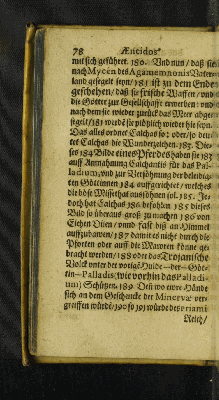 78 Æneidos
mit sich geführet. 180. Vnd nun / daß sie
nach Mycen des Agamemnonis Vater-
land gesegelt seyn / 181 ist zu dem Ende
geschehen / daß sie frische Waffen / vnd
die Götter zur Gesellschafft erwerben: vnd
nach dem sie wieder zurück das Meer abge-
segelt / 182 werdē sie plötzlich wieder hie seyn.
Das alles ordnet Calchas so: oder / so deu-
tet Calchas die Wunderzeichen. 183. Die-
ses 184 Bilde eines Pferdes haben sie 183
auff Anmahnung Calchantis für das Pal-
ladium, vnd zur Versöhnung der beleidig-
ten Göttinnen 184 auffgerichtet / welches
die böse Missethat aussöhnen sol. 185. Je-
doch hat Calchas 186 befohlen 185 dieses
Bild so überaus groß zu machen 186 von
Eichen Otten / vnnd fast biß an Himmel
auffzubawen / 187 damit es nicht durch die
Pforten oder auff die Mawren könne ge-
bracht werden / 188 oder das Trojanische
Volck vnter der vorigē Hulde -- der -- Göt-
tin -- Palladis (wie vorhin das Palladi-
um) Schützen. 189. Deñ wo ewre Hände
sich an dem Geschancke der Minervæ ver-
greiffen würdē / 190 so 191 würde des Priami
Reich /